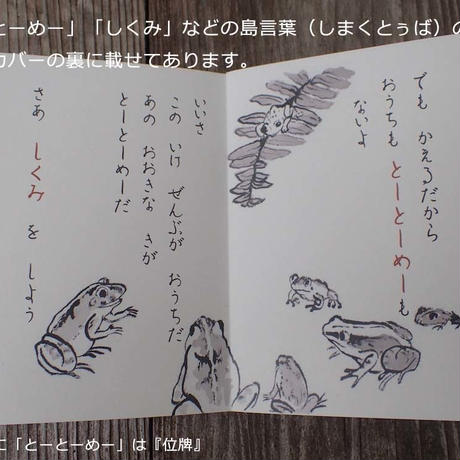 とーめー」「しくみ」などの島言葉（しまくとぅば）の
カバーの裏に載せてあります。
でも かえるだから
おうちも とーとーめーも
ないよ
いいさ
この いけ ぜんぶが おうちだ
あの おおきな きが
とーとーめーだ
さあ しくみ を しよう
「とーとーめー」は『位牌』